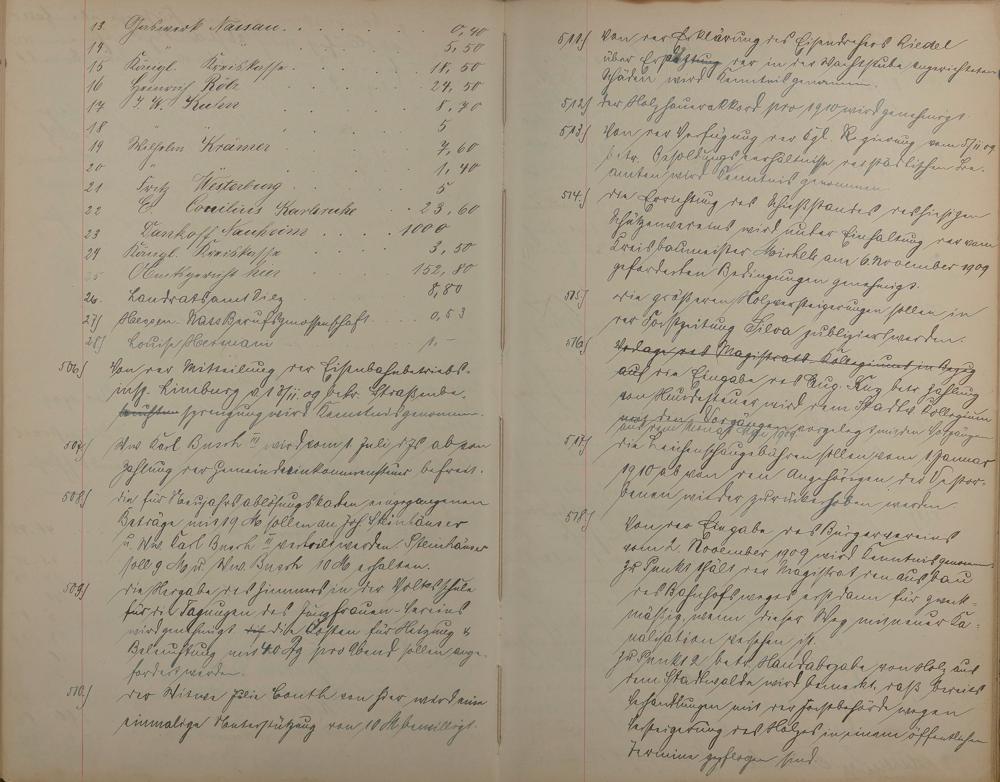 13 Gaswerk Nassau . . . . 0,40
14 " " . . . 5,50
15 Königl. Kreiskasse . . . 18,50
16 Heinrich Rölz . . . 24,50
17 J. W. Kuhn . . . 8,70
18 " . . . 5
19 Wilhelm Krämer . . . 7,60
20 " . . . 1,40
21 Fritz Westerburg . . . 5
22 C. Karlsruhe . . 23,60
23 Nauheim . . . 1000
24 Königl. Kreiskasse . . . 3,50
25 hier . . . 152,80
26. Landratsamt Diez . . . 8,80
27) Nass Berufsgenossenschaft . . 0,53
28) Louise Hermann . . . 1.-
506) Von der Mitteilung der Eisenbahnbetriebs-
insp. Limburg v. 18/11.09 betr. Straßenbe-
sprengung wird Kenntnis genommen.
507) Wwe Karl Busch III wird vom 1 Juli d. Js ab von
Zahlung der Gemeindeeinkommensteuer befreit.
508) Die für Neujahrsablösungskarten eingegangenen
Beträge mit 19 M sollen an Joh Steinhäuser
u. Wwe Karl Busch II verteilt werden. Steinhäuser
soll 9 M u. Wwe Busch 10 M erhalten.
509) Die Hergabe des Zimmers in der Volksschule
für die Tagungen des Jungfrauen-Vereins
wird genehmigt die Kosten für Heizung &
Beleuchtung mit 40 Pfg pro Abend sollen ange-
fordert werden.
510) Der Witwe Conth von hier wird eine
einmalige Unterstützung von 10 M bewilligt.
511) Von der Erklärung des Eisendrehers Riedel
über der in der Wachtstube angerichteten
Schäden wird Kenntnis genommen.
512) Der Holzhauerakkord pro 1910 wird genehmigt.
513) Von der Verfügung der Kgl. Regierung vom 5/11 09
betr. Besoldungsverhältnisse der städtischen Be-
amten wird Kenntnis genommen
514.) Die Errichtung des Schießstandes des hiesigen
Schützenvereins wird unter Einhaltung der vom
Kreisbaumeister am 6 November 1909
geforderten Bedingungen genehmigt.
515) Die größeren Holzversteigerungen sollen in
der Forstzeitung Silva publiziert werden.
516) Vorlage des Magistrats Kollegiums in Bezug
auf die Eingabe des Aug. betr Zahlung
von Hundesteuer wird dem Stadtv Kollegium
mit den Vorgängen vorgelegt
517) Die Leichenschaugebühren sollen vom 1 Januar
1910 ab von den Angehörigen der Verstor-
benen wieder zurückerhoben werden
518) Von der Eingabe des Bürgervereins
vom 2. November 1909 wird Kenntnis genommen.
Zu Punkt 1 hält der Magistrat den Ausbau
des Bahnhofsweges erst dann für zweck-
mäßig, wenn dieser Weg mit neuer Ka-
nalisation versehen ist.
Zu Punkt 2 betr. Handabgabe von Holz aus
dem Stadtwalde wird bemerkt, daß bereits
Verhandlungen mit der Forstbehörde wegen
Versteigerung des Holzes in einem öffentlichen
Termine gepflogen sind.